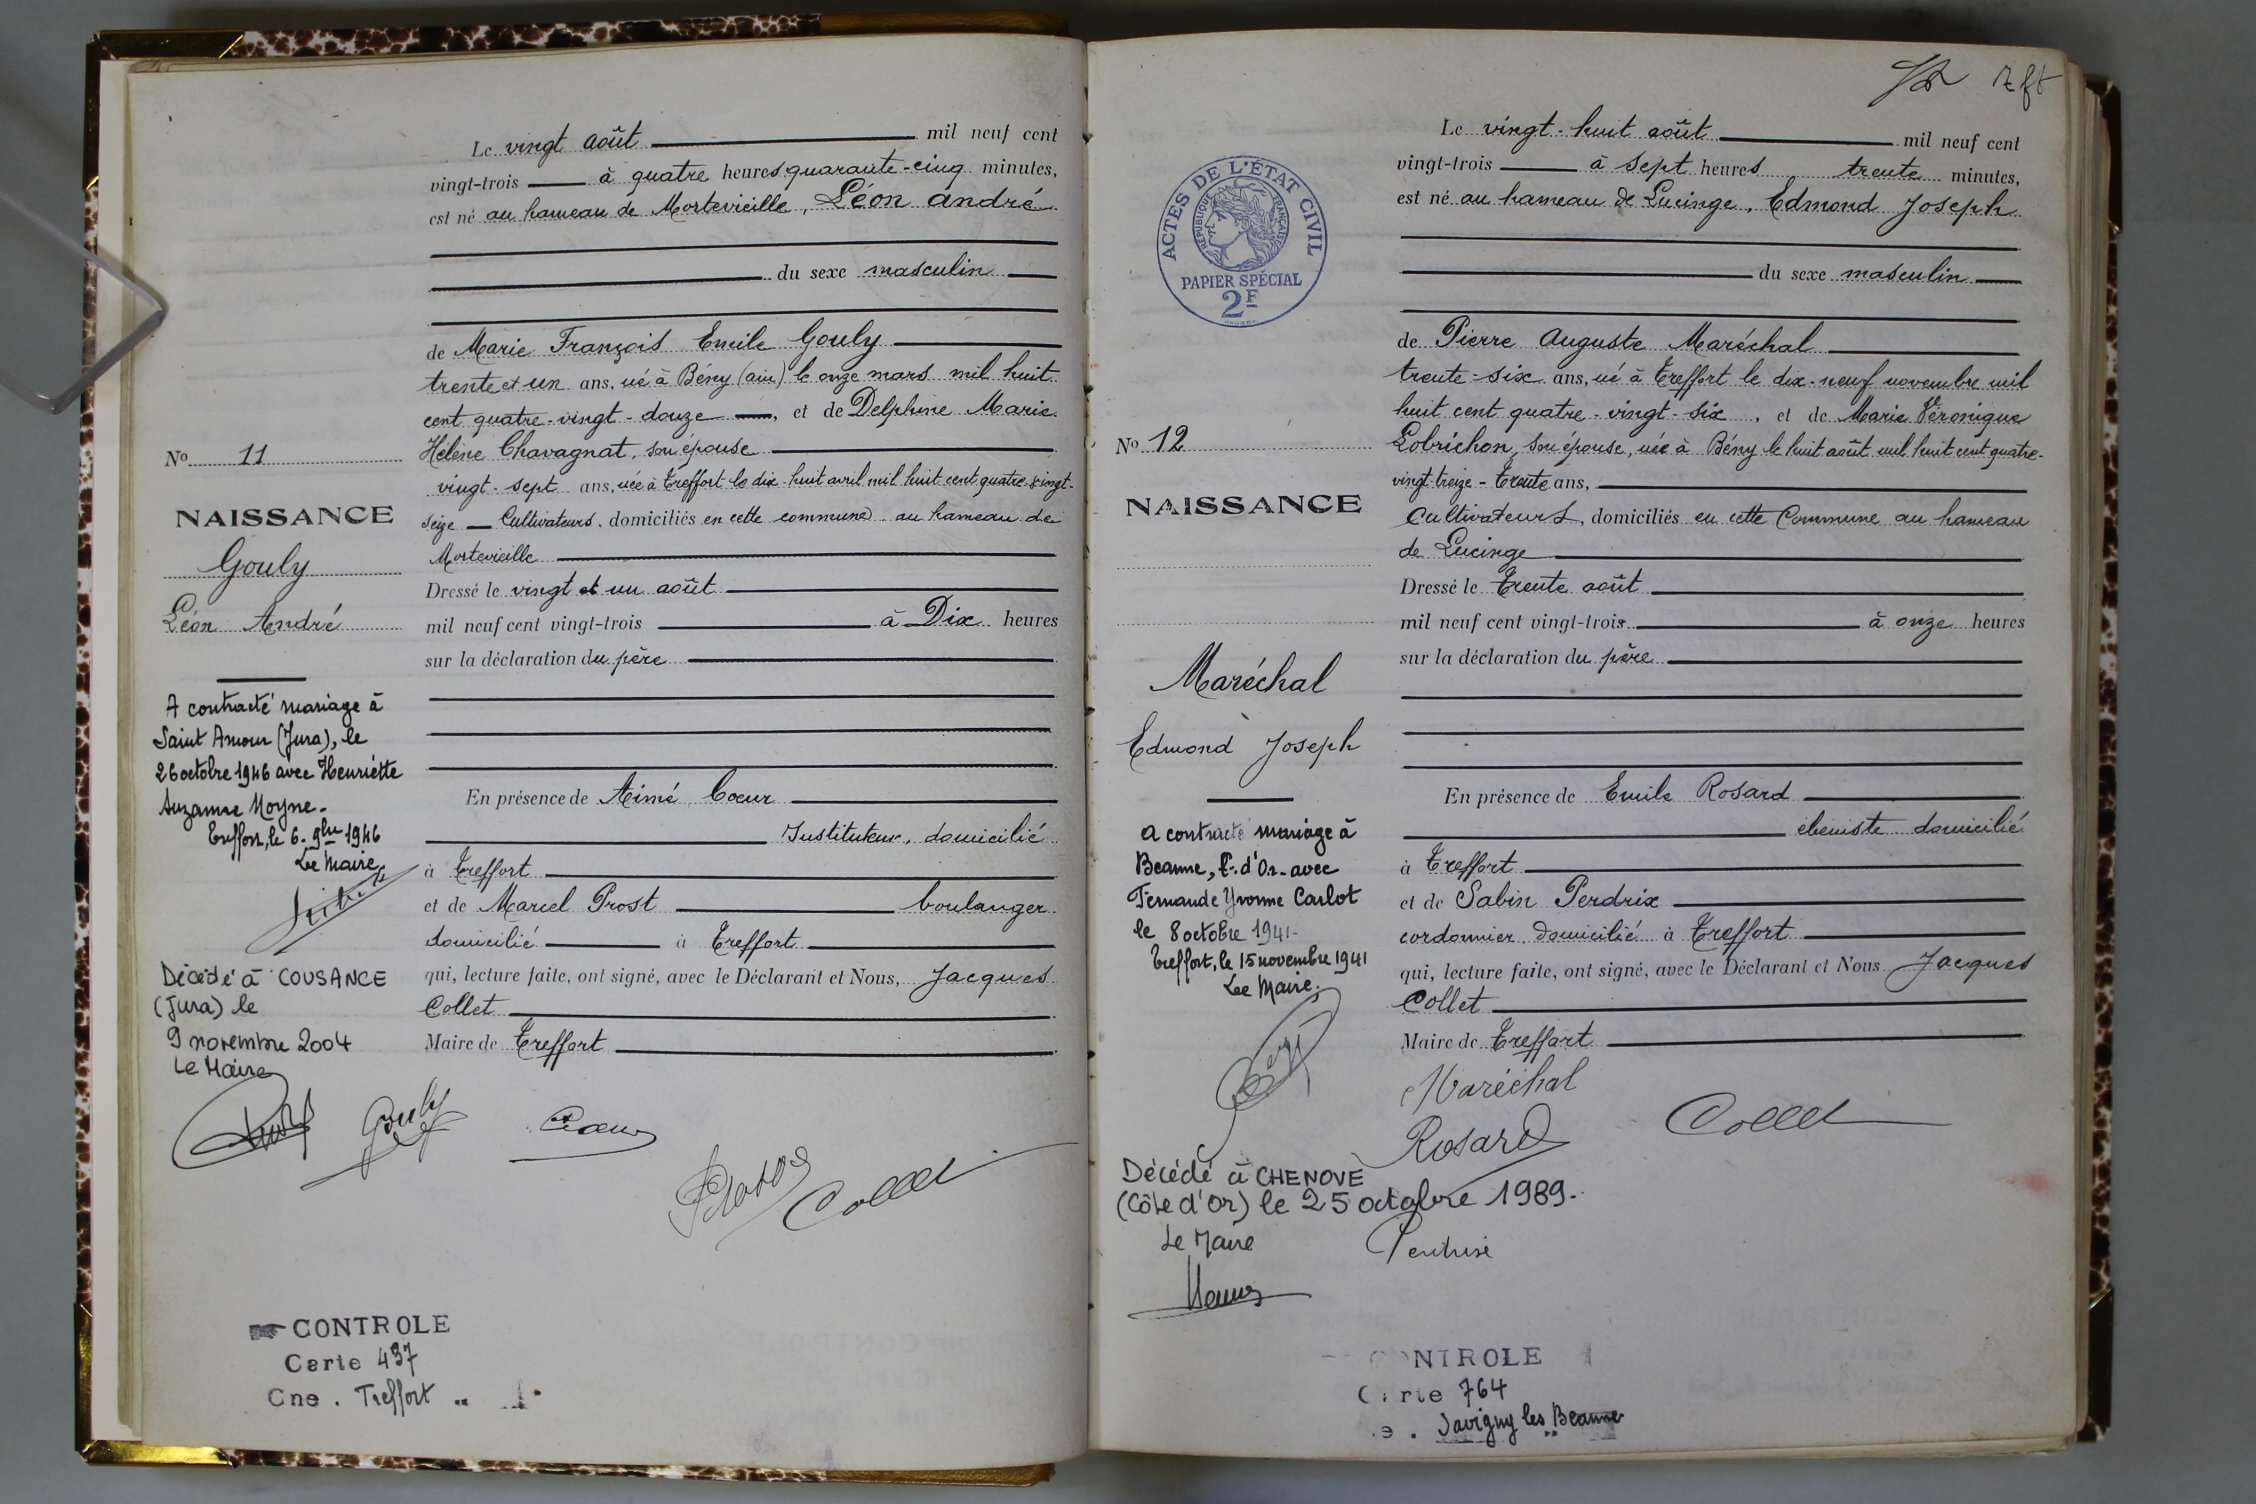 Le vingt août mil neuf cent
vingt-trois à quatre heures quarante-cinq minutes,
est né au hameau de Mortevieille, Léon André
du sexe masculin
de Marie François Emile Gouly
trente et un ans, né à Bény (ain) le onze mars mil huit
cent quatre-vingt-douze, et de Delphine Marie
Hélène Chavagnat, son épouse
vingt-sept ans, née à Treffort le dix-huit avril mil huit cent quatre-vingt-
seize Cultivateurs, domiciliés en cette commune au hameau de
Mortevieille
Dressé le vingt et un août
mil neuf cent vingt-trois à Dix heures
sur la déclaration du père
En présence de Aimé Coeur
Instituteur, domicilié
à Treffort
et de Marcel Prost boulanger
domicilié à Treffort
qui, lecture faite, ont signé, avec le Déclarant et Nous, Jacques
Collet
Maire de Treffort
No 11
NAISSANCE
Gouly
Léon André
A contracté mariage à
Saint Amour (Jura), le
26 octobre 1946 avec Henriette
Suzanne Moyne.
Treffort, le 6. 9bre 1946
Le Maire
Décédé à COUSANCE
(Jura) le
9 novembre 2004
Le Maire
Gouly
Coeur
Collet
CONTROLE
Carte 437
Cne. Treffort
ACTES DE L'ÉTAT CIVIL
RÉPUBLIQUE FRANÇAISE
PAPIER SPÉCIAL
2F
Le vingt-huit août mil neuf cent
vingt-trois à sept heures trente minutes,
est né au hameau de Lucinge, Edmond Joseph
du sexe masculin
de Pierre Auguste Maréchal
trente-six ans, né à Treffort le dix-neuf novembre mil
huit cent quatre-vingt-six, et de Marie Véronique
Lobrichon, son épouse, née à Bény le huit août mil huit cent quatre-
vingt-treize - Trente ans,
Cultivateurs, domiciliés en cette Commune au hameau
de Lucinge
Dressé le Trente août
mil neuf cent vingt-trois à onze heures
sur la déclaration du père
En présence de Emile Rosard
ébeniste domicilié
à Treffort
et de Sabin Perdrix
cordonnier domicilié à Treffort
qui, lecture faite, ont signé, avec le Déclarant et Nous Jacques
Collet
Maire de Treffort
No 12
NAISSANCE
Maréchal
Edmond Joseph
a contracté mariage à
Beaune, C. d'Or. avec
Fernande Yvonne Carlot
le 8 octobre 1941-
Treffort, le 15 novembre 1941
Le Maire,
Maréchal
Rosard
Collet
Décédé à CHENOVE
(Côte d'Or) le 25 octobre 1989-
Le Maire
CONTROLE
Carte 764
e. Savigny les Beaune